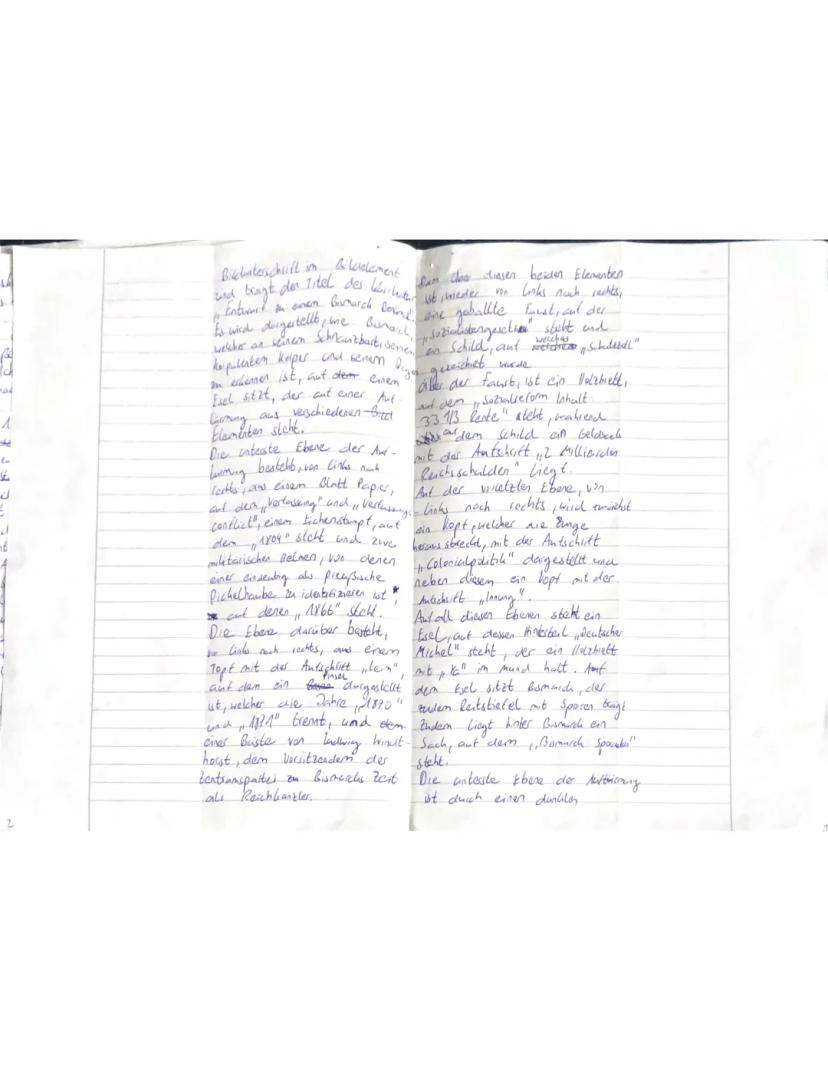 Bildunterschrift im Bildelement
und trägt den Titel des Karikatur
„Entwurf zu einem Bismarck Denkmal".
Es wird dargestellt, wie Bismarck,
welcher an seinem Schnauzbart, seinem
korpulentem Körper und seinem
zu erkennen ist, auf dem einem
Esel sitzt, der auf einer Auf-
türmung aus verschiedenen Bild
Elementen steht.
Die unterste Ebene der Auf-
türmung besteht, von links nach
rechts, aus einem Blatt Papier,
auf dem „Verfassung" und „Verfassungs-
conflict", einem Eichenstumpf, auf
dem „1864" steht und zwei
militärischen Helmen, von denen
einer eindeutig als preußische
Pickelhaube zu identifizieren ist,
auf denen „1866" steht.
Die Ebene darüber besteht,
von links nach rechts, aus einem
Topf mit der Aufschrift „Leim",
auf dem ein Pinsel dargestellt
ist, welcher die Jahre „1870"
und „1871" trennt, und dem
einer Büste von Ludwig Windt-
horst, dem Vorsitzendem der
Zentrumspartei zu Bismarcks Zeit
als Reichkanzler.
2
über diesen beiden Elementen
ist wieder von links nach rechts,
eine geballte Faust, auf der
„Sozialistengesetz" steht und
ein Schild, auf welches „Schutzzoll"
gezeichnet wurde
Über der Faust, ist ein Holzbrett,
auf dem „Sozialreform Inhalt:
33 1/3 Rente" steht, während
auf dem Schild ein Geldsack
mit der Aufschrift „2 Milliarden
Reichsschulden" liegt.
Auf der vorletzten Ebene, von
links nach rechts, wird zunächst
ein Kopf, welcher die Zunge
herausstreckt, mit der Aufschrift
„Colonialpolitik" dargestellt und
neben diesem ein Kopf mit der
Aufschrift „Innung".
Auf all diesen Ebenen steht ein
Esel, auf dessen Hinterteil „Deutscher
Michel" steht, der ein Holzbrett
mit im Mund hält. Auf
dem Esel sitzt Bismarck, der
zudem Reitstiefel mit Sporen trägt
Zudem liegt hinter Bismarck ein
Sack, auf dem „Bismarck Spende"
steht.
Die unterste Ebene der Auftürmung
ist durch einen dunklen